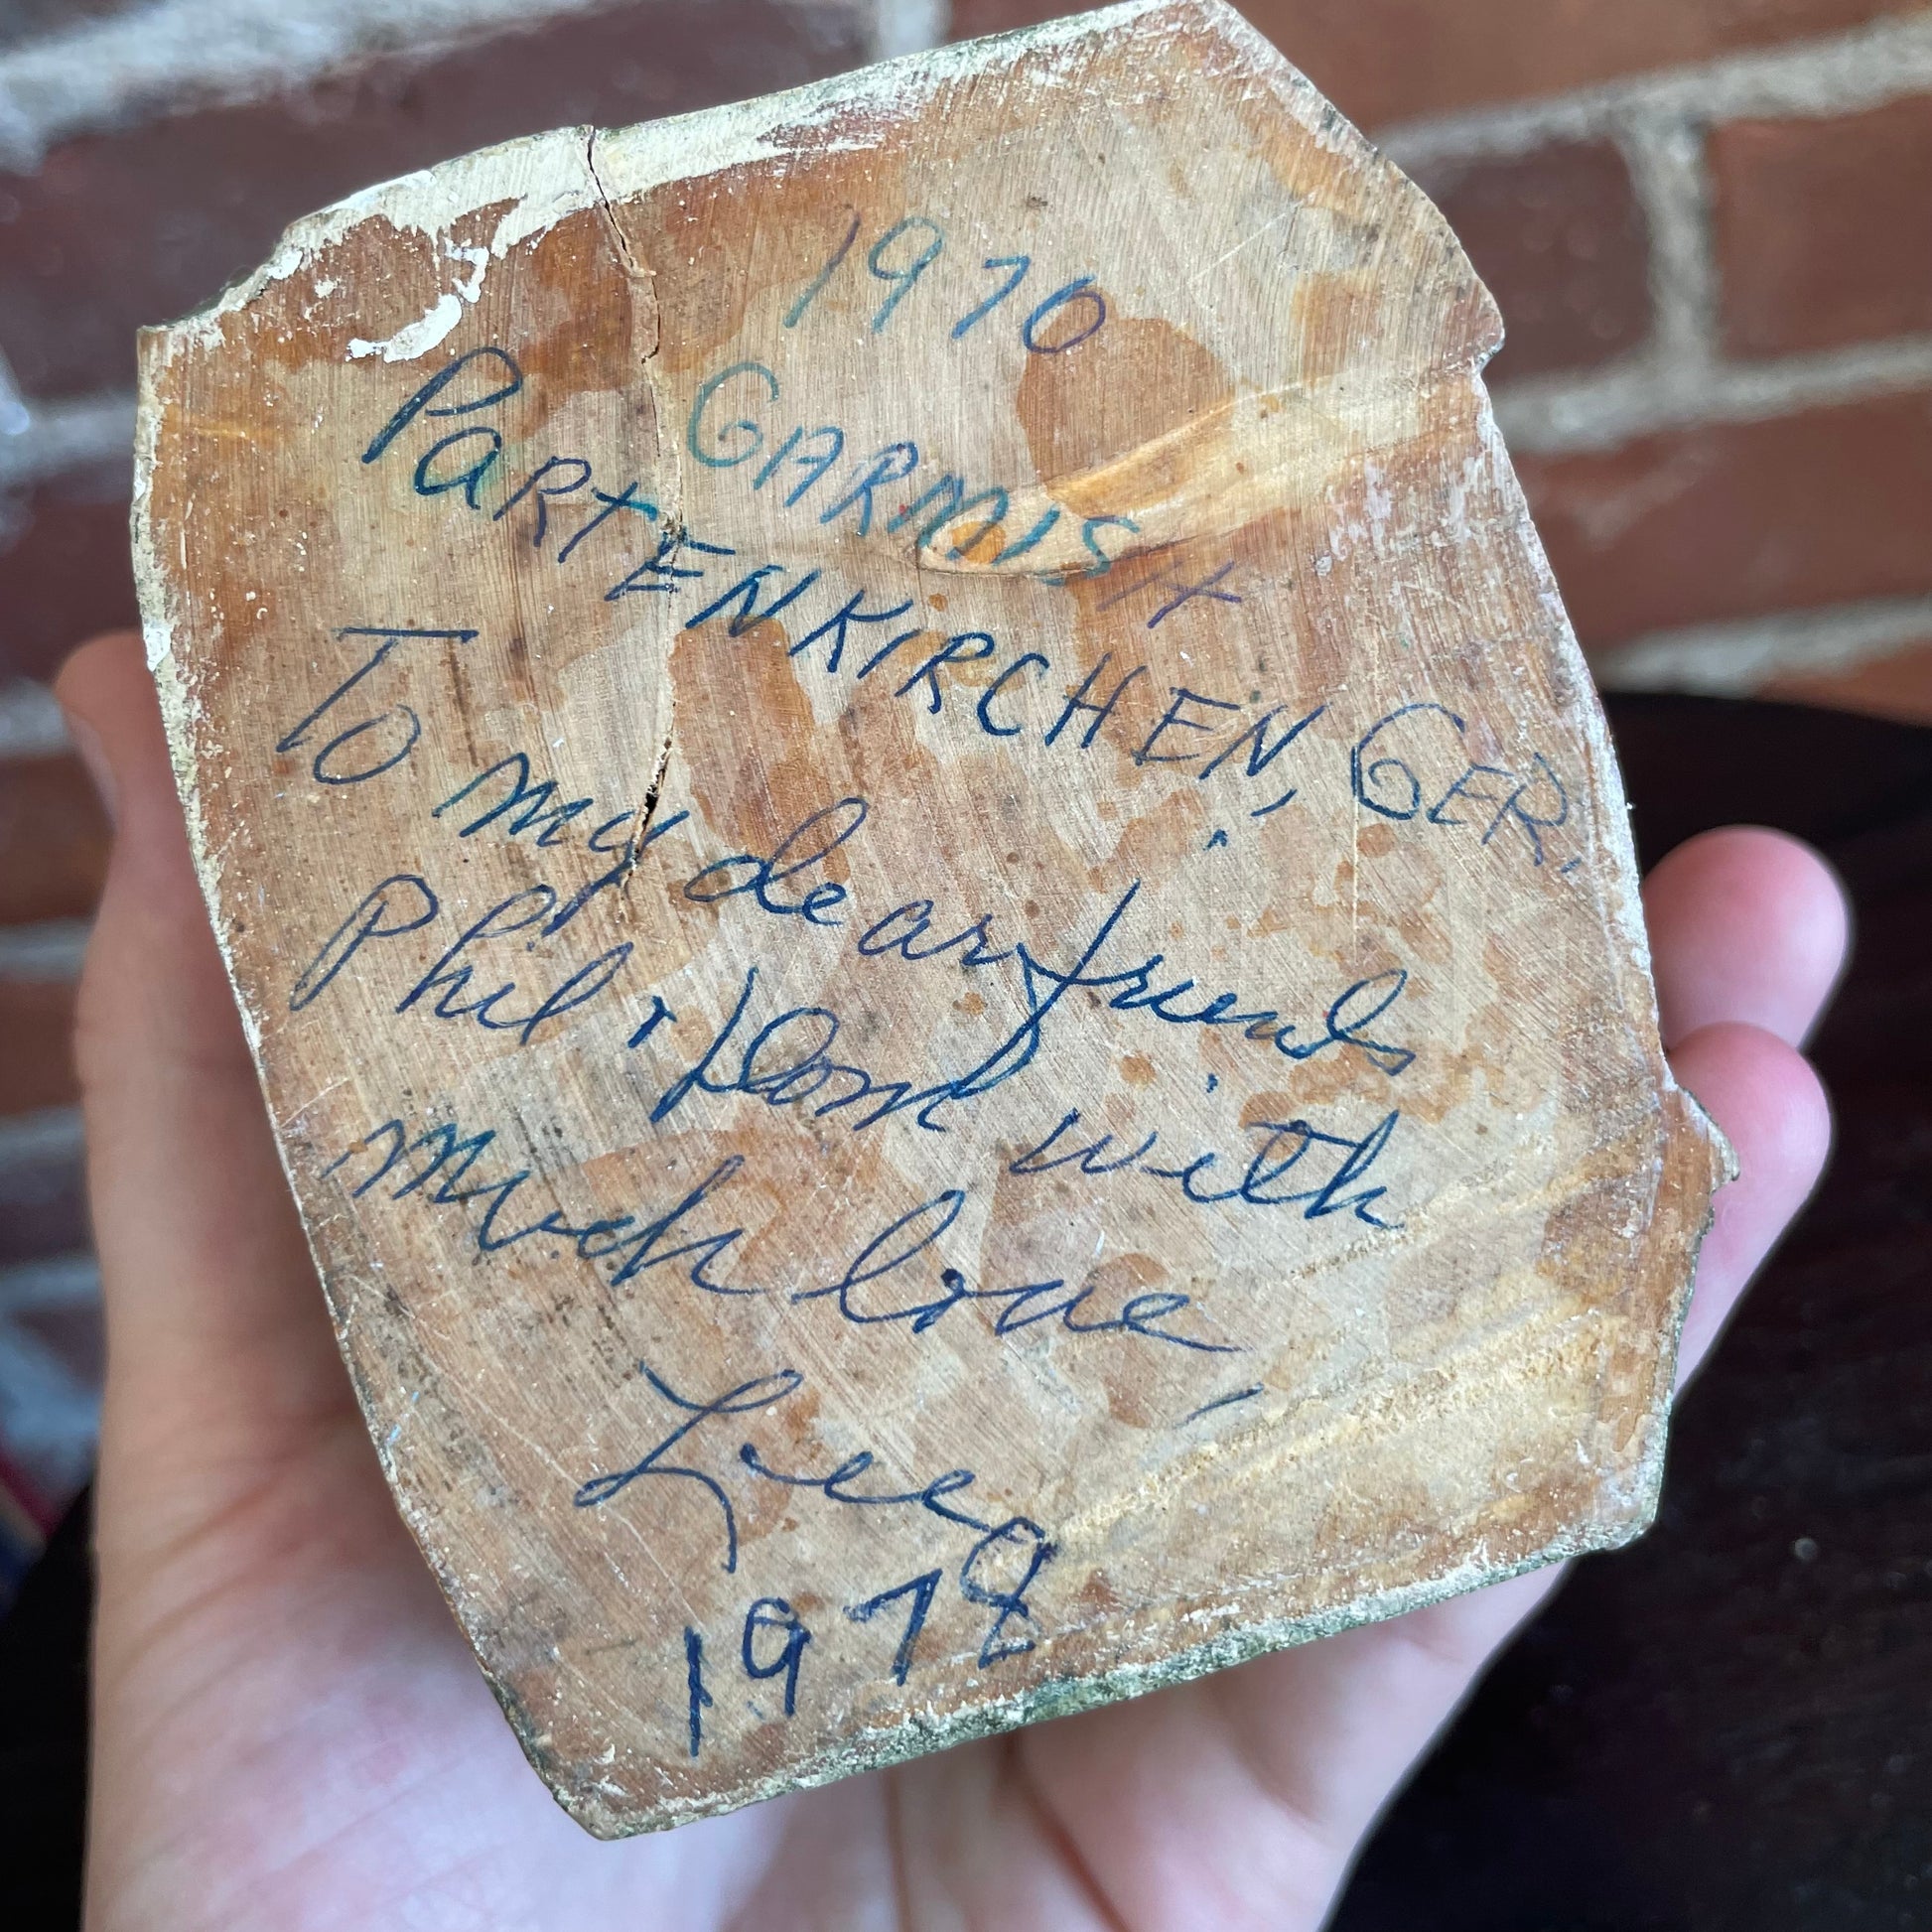 1970
GARMISH
PaRTENKIRCHEN, GER.
To my dear friends
Phil + with
much love,
Lee
1978